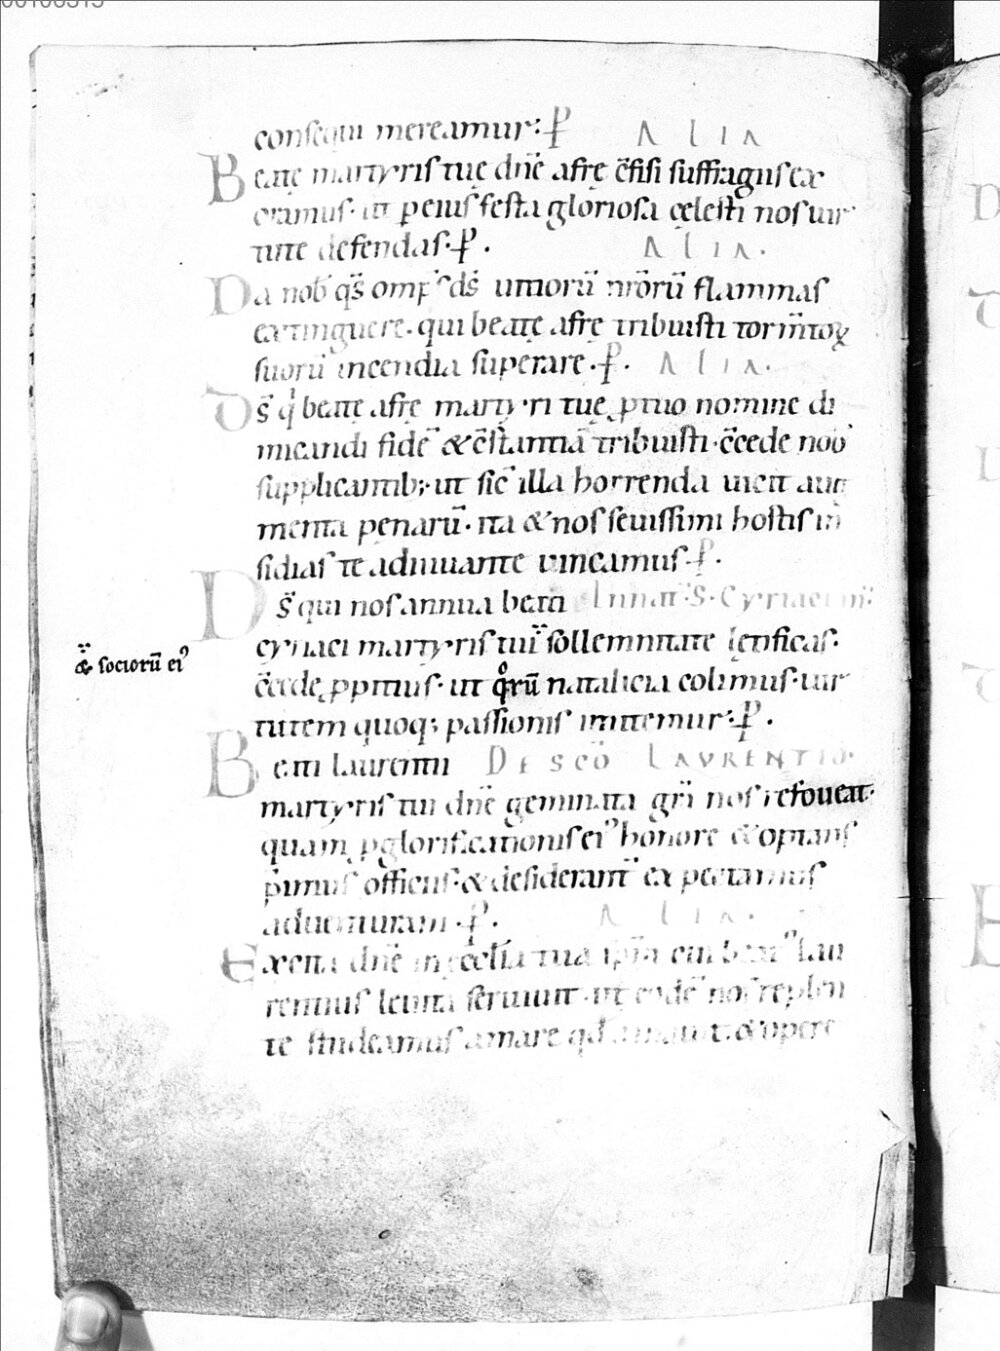 consequi mereamur: P ALIA
Beatę martyris tuę dn̄e afrę c̄fisi suffragiis ex
oramus. ut p eius festa gloriosa cęlesti nos uir
tute defendas. P. ALIA.
Da nob' q̄s omp̄s ds̄ uitiorū nr̄orū flammas
extinguere. qui beatę afrę tribuisti torm̄toꝝ
suorū incendia superare. P. ALIA.
Ds̄ q' beatę afrę martyri tuę ꝓ tuo nomine di
micandi fidē & c̄stantiā tribuisti. c̄cede nob'
supplicantib; ut sic̄ illa horrenda uicit aug
menta penarū. ita & nos seuissimi hostis in
sidias te adiuuante uincamus. P.
Ds̄ qui nos annua beati In nat̄. S. Cyriaci m̄.
cyriaci martyris tui sollemnitate lętificas.
& sociorū ei'
c̄cede ꝓpitius. ut qͦrū natalicia colimus. uir
tutem quoq; passionis imitemur: P.
Beati laurentii DE SCO LAVRENTIO.
martyris tui dn̄e geminata gr̄a nos refoueat.
quam ꝓ glorificationis ei' honore & optatis
p̄imus officiis. & desideranť expectamus
aduenturam. P. ALIA.
Excita dn̄e in ęcclīa tua sp̄m cui beat' lau
rentius leuita seruiuit. ut eodē nos repleti
te studeamus amare qd̄ amauit. & opere